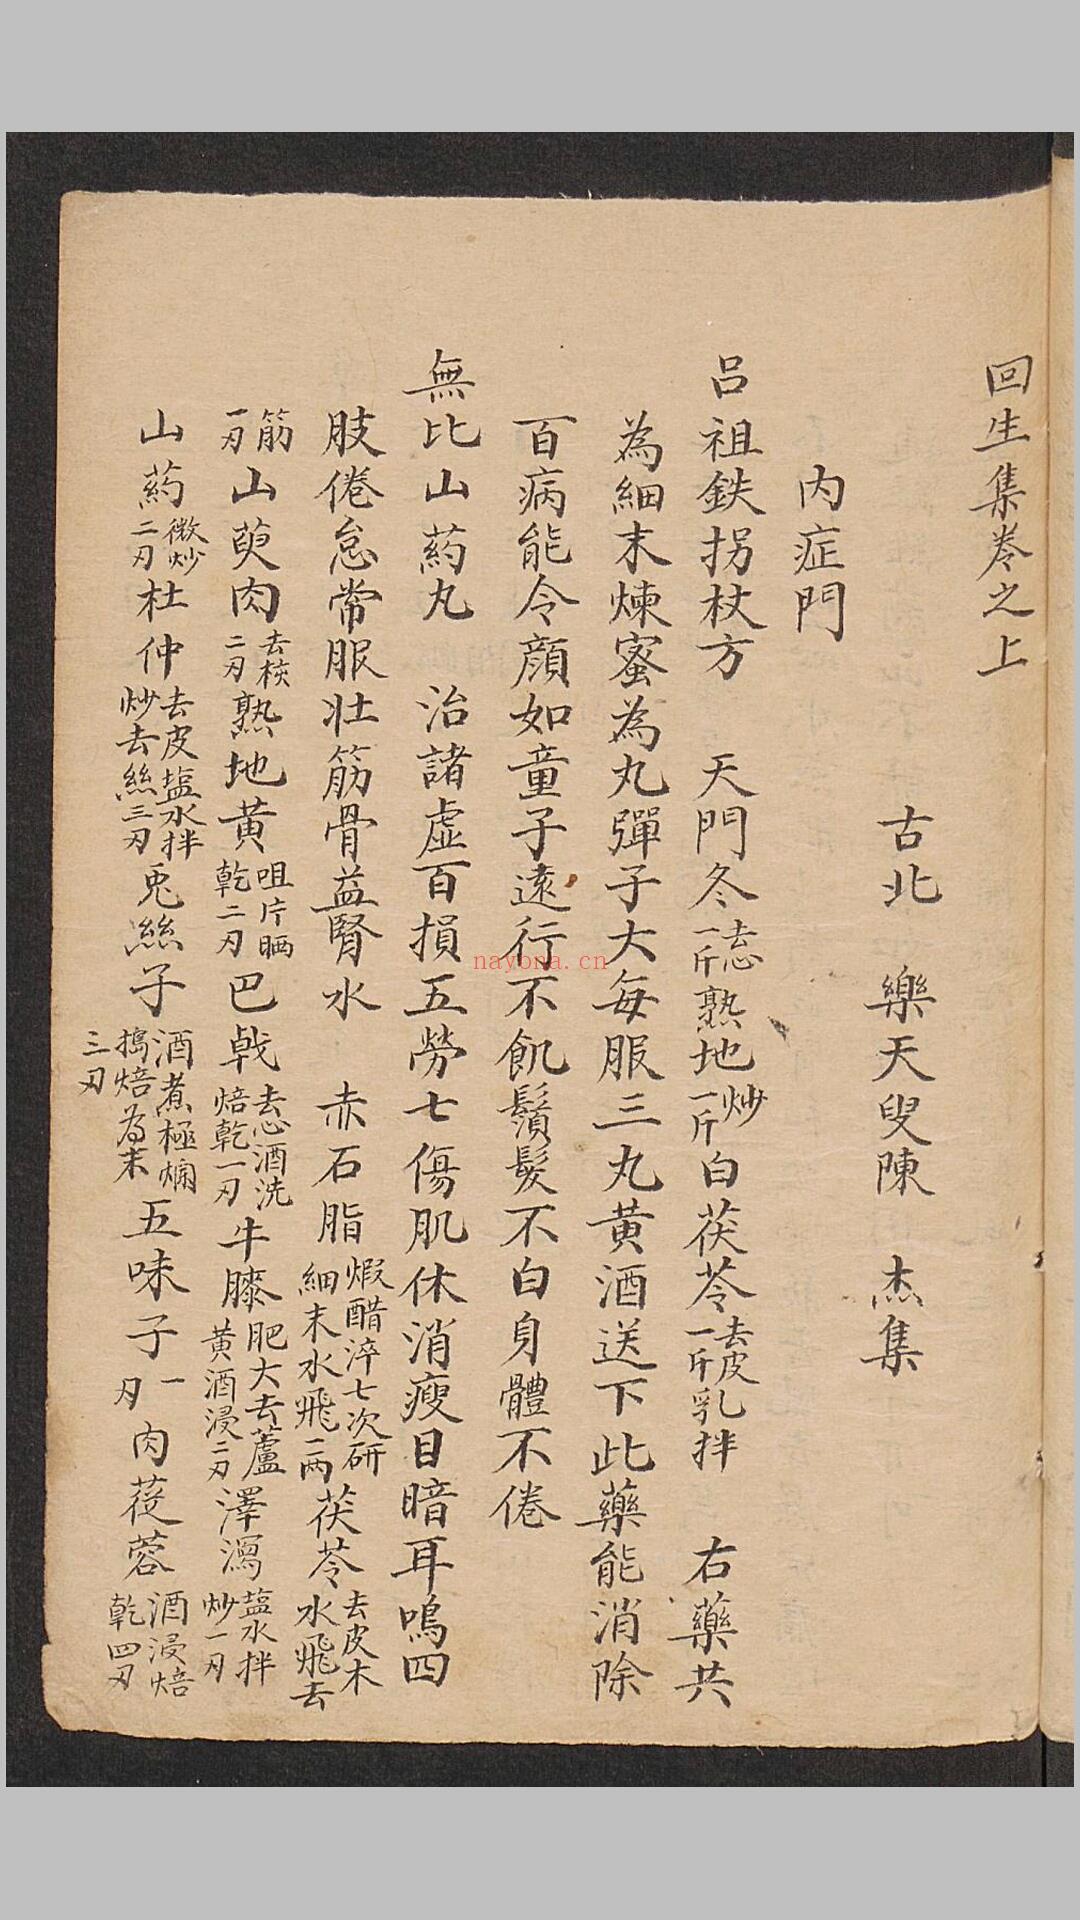 回生集卷之上
古北 樂天叟陳 杰集
内症門
吕祖鉄拐杖方 天門冬去心一斤熟地炒一斤白茯苓去皮一斤乳拌 右藥共
為細末煉蜜為丸彈子大每服三丸黄酒送下此藥能消除
百病能令顔如童子遠行不飢鬚髮不白身體不倦
無比山药丸 治諸虚百損五勞七傷肌休消瘦目暗耳鳴四
肢倦怠常服壯筋骨益腎水 赤石脂煆醋淬七次研細末水飛一两茯苓去皮木水飛去
筋一刄山萸肉去核二刄熟地黄咀片晒乾二刄巴戟去心酒洗焙乾一刄牛膝肥大去蘆黄酒浸二刄澤瀉盐水拌炒一刄
山药微炒二刄杜仲去皮盐水拌炒去絲三刄兎絲子酒煮極爛搗焙為末三刄五味子一刄肉蓯蓉酒浸焙乾四刄
nayona.cn